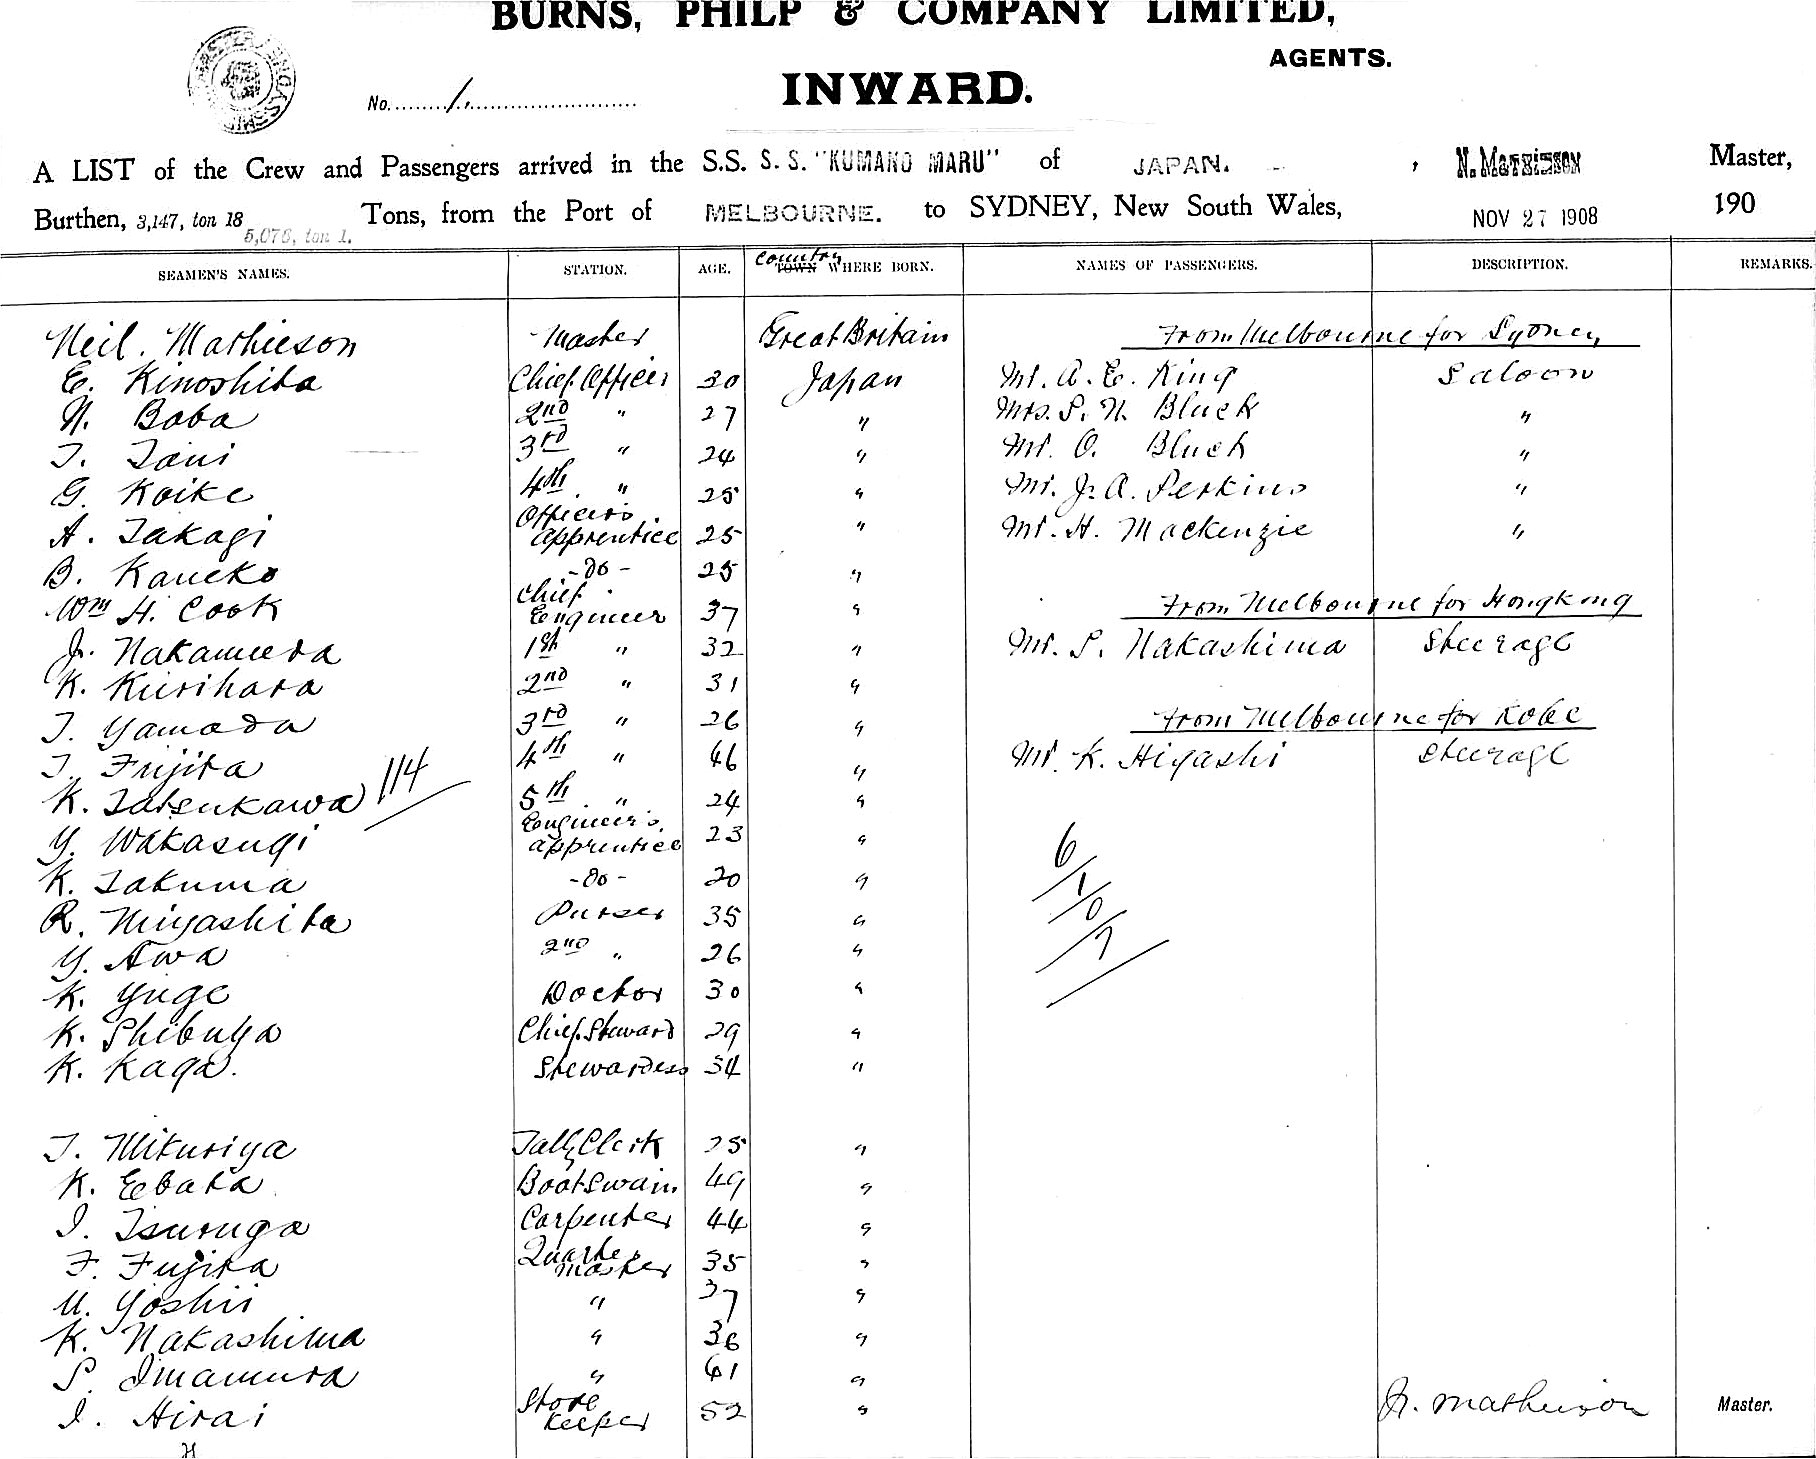 BURNS, PHILP & COMPANY LIMITED,
AGENTS.
No. 1. INWARD.
A LIST of the Crew and Passengers arrived in the S.S. S. S. "KUMANO MARU" of JAPAN. , N. Mathieson Master,
Burthen, 3,147, ton 18 Tons, from the Port of MELBOURNE. to SYDNEY, New South Wales, NOV 27 1908 190
5,076, ton 1.
SEAMEN'S NAMES. STATION. AGE. TOWN Country WHERE BORN. NAMES OF PASSENGERS. DESCRIPTION. REMARKS.
Neil. Mathieson Master Great Britain From Melbourne for Sydney
E. Kinoshita Chief Officer 30 Japan Mr. A. E. King Saloon
N. Baba 2nd " 27 " Mrs. S. N. Bluck "
T. Tani 3rd " 24 " Mr. O. Bluck "
G. Koike 4th " 25 " Mr. J. A. Perkins "
A. Takagi Officers apprentice 25 " Mr. H. Mackenzie "
B. Kaneko -do- 25 "
Wm H. Cook Chief Engineer 37 " From Melbourne for Hongkong
J. Nakamura 1st " 32 " Mr. S. Nakashima Steerage
K. Kurihara 2nd " 31 "
T. Yamada 3rd " 26 " From Melbourne for Kobe
T. Fujita 4th " 46 " Mr. K. Higashi Steerage
K. Tatsukawa 114 5th " 24 "
Y. Wakasugi Engineer's apprentice 23 " 6
K. Takuma -do- 20 " 1
R. Miyashita Purser 35 " 0
Y. Awa 2nd " 26 " 7
K. Yuge Doctor 30 "
K. Shibuya Chief. Steward 29 "
K. Kaga. Stewardess 34 "
T. Mikuriya Tally Clerk 25 "
K. Ebata Boatswain 49 "
I. Tsuruga Carpenter 44 "
F. Fujita Quarter master 35 "
U. Yoshii " 37 "
K. Nakashima " 36 "
S. Imamura " 41 "
I. Hirai Store Keeper 52 " N. Mathieson Master.